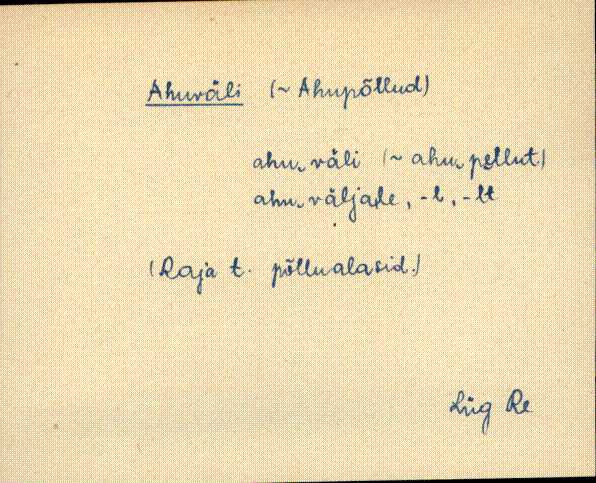 Ahuväli (~ Ahupõllud)
ahu‿väli (~ ahu‿pe̮llut)
ahu‿väljale, -l, -lt
(Raja t. põllualasid.)
Lüg Re